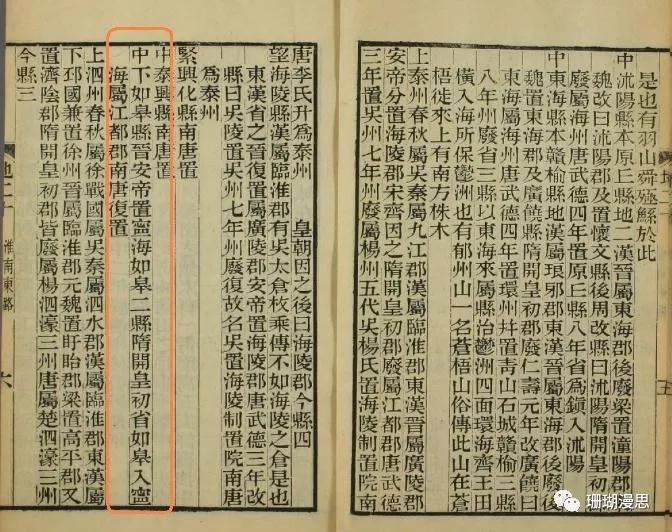 是也有羽山舜殛鯀於此
中沭陽縣本原丘縣地二漢晉屬東海郡後廢梁置潼陽郡
魏改曰沭陽郡及置懷文縣後周改縣曰沭陽隋開皇初郡
廢屬海州唐武德四年置原丘縣八年省爲鎮入沭陽
中東海縣本贛榆縣地漢屬琅邪郡東漢晉屬東海郡後廢後
魏置東海郡及廣饒縣隋開皇初郡廢仁壽元年改廣饒曰
東海屬海州唐武德四年置環州幷置靑山石城贛榆三縣
八年州廢省三縣以東海來屬縣治鬱洲四面環海齊王田
橫入海所保鬱洲也有郁州山一名蒼梧山俗傳此山在蒼
梧徙來上有南方株木
上泰州春秋屬吳秦屬九江郡漢屬臨淮郡東漢晉屬廣陵郡
安帝分置海陵郡宋齊因之隋開皇初郡廢屬江都郡唐武德
三年置吳州七年州廢屬楊州五代吳楊氏置海陵制置院南
五
唐李氏升爲泰州 皇朝因之後曰海陵郡今縣四
望海陵縣漢屬臨淮郡有吳太倉枚乘傳不如海陵之倉是也
東漢省之晉復置屬廣陵郡安帝置海陵郡唐武德三年改
縣曰吳陵置吳州七年州廢復故名吳置海陵制置院南唐
爲泰州
緊興化縣南唐置
中泰興縣南唐置
中下如皋縣晉安帝置寧海如皋二縣隋開皇初省如皋入寧
海屬江都郡南唐復置
上泗州春秋屬徐戰國屬吳秦屬泗水郡漢屬臨淮郡東漢屬
下邳國兼置徐州晉屬臨淮郡元魏置盱眙郡梁置高平郡又
置濟陰郡隋開皇初郡皆廢屬楊泗濠三州唐屬楚泗濠三州
今縣三
地二十 淮南東路 六
珊瑚漫思